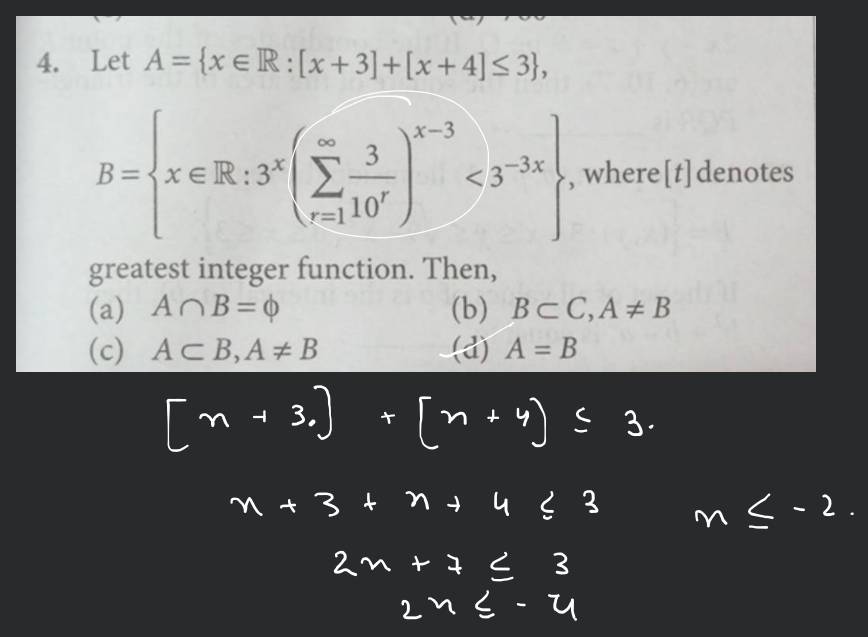 4. Let A = {x ∈ ℝ : [x + 3] + [x + 4] ≤ 3},
B = { x ∈ ℝ : 3^x ( ∑_{r=1}^{∞} 3/10^r )^{x−3} < 3^{−3x} }, where [t] denotes
greatest integer function. Then,
(a) A ∩ B = ϕ (b) B ⊂ C, A ≠ B
(c) A ⊂ B, A ≠ B (d) A = B
[x + 3.] + [x + 4] ≤ 3.
x + 3 + x + 4 ≤ 3 x ≤ -2.
2x + 7 ≤ 3
2x ≤ -4